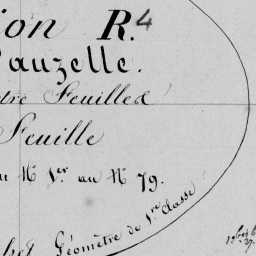 ion R. 4
auzelle.
tre Feuilles
Feuille
u N° 1er au N° 79.
Géomètre de 1re Classe